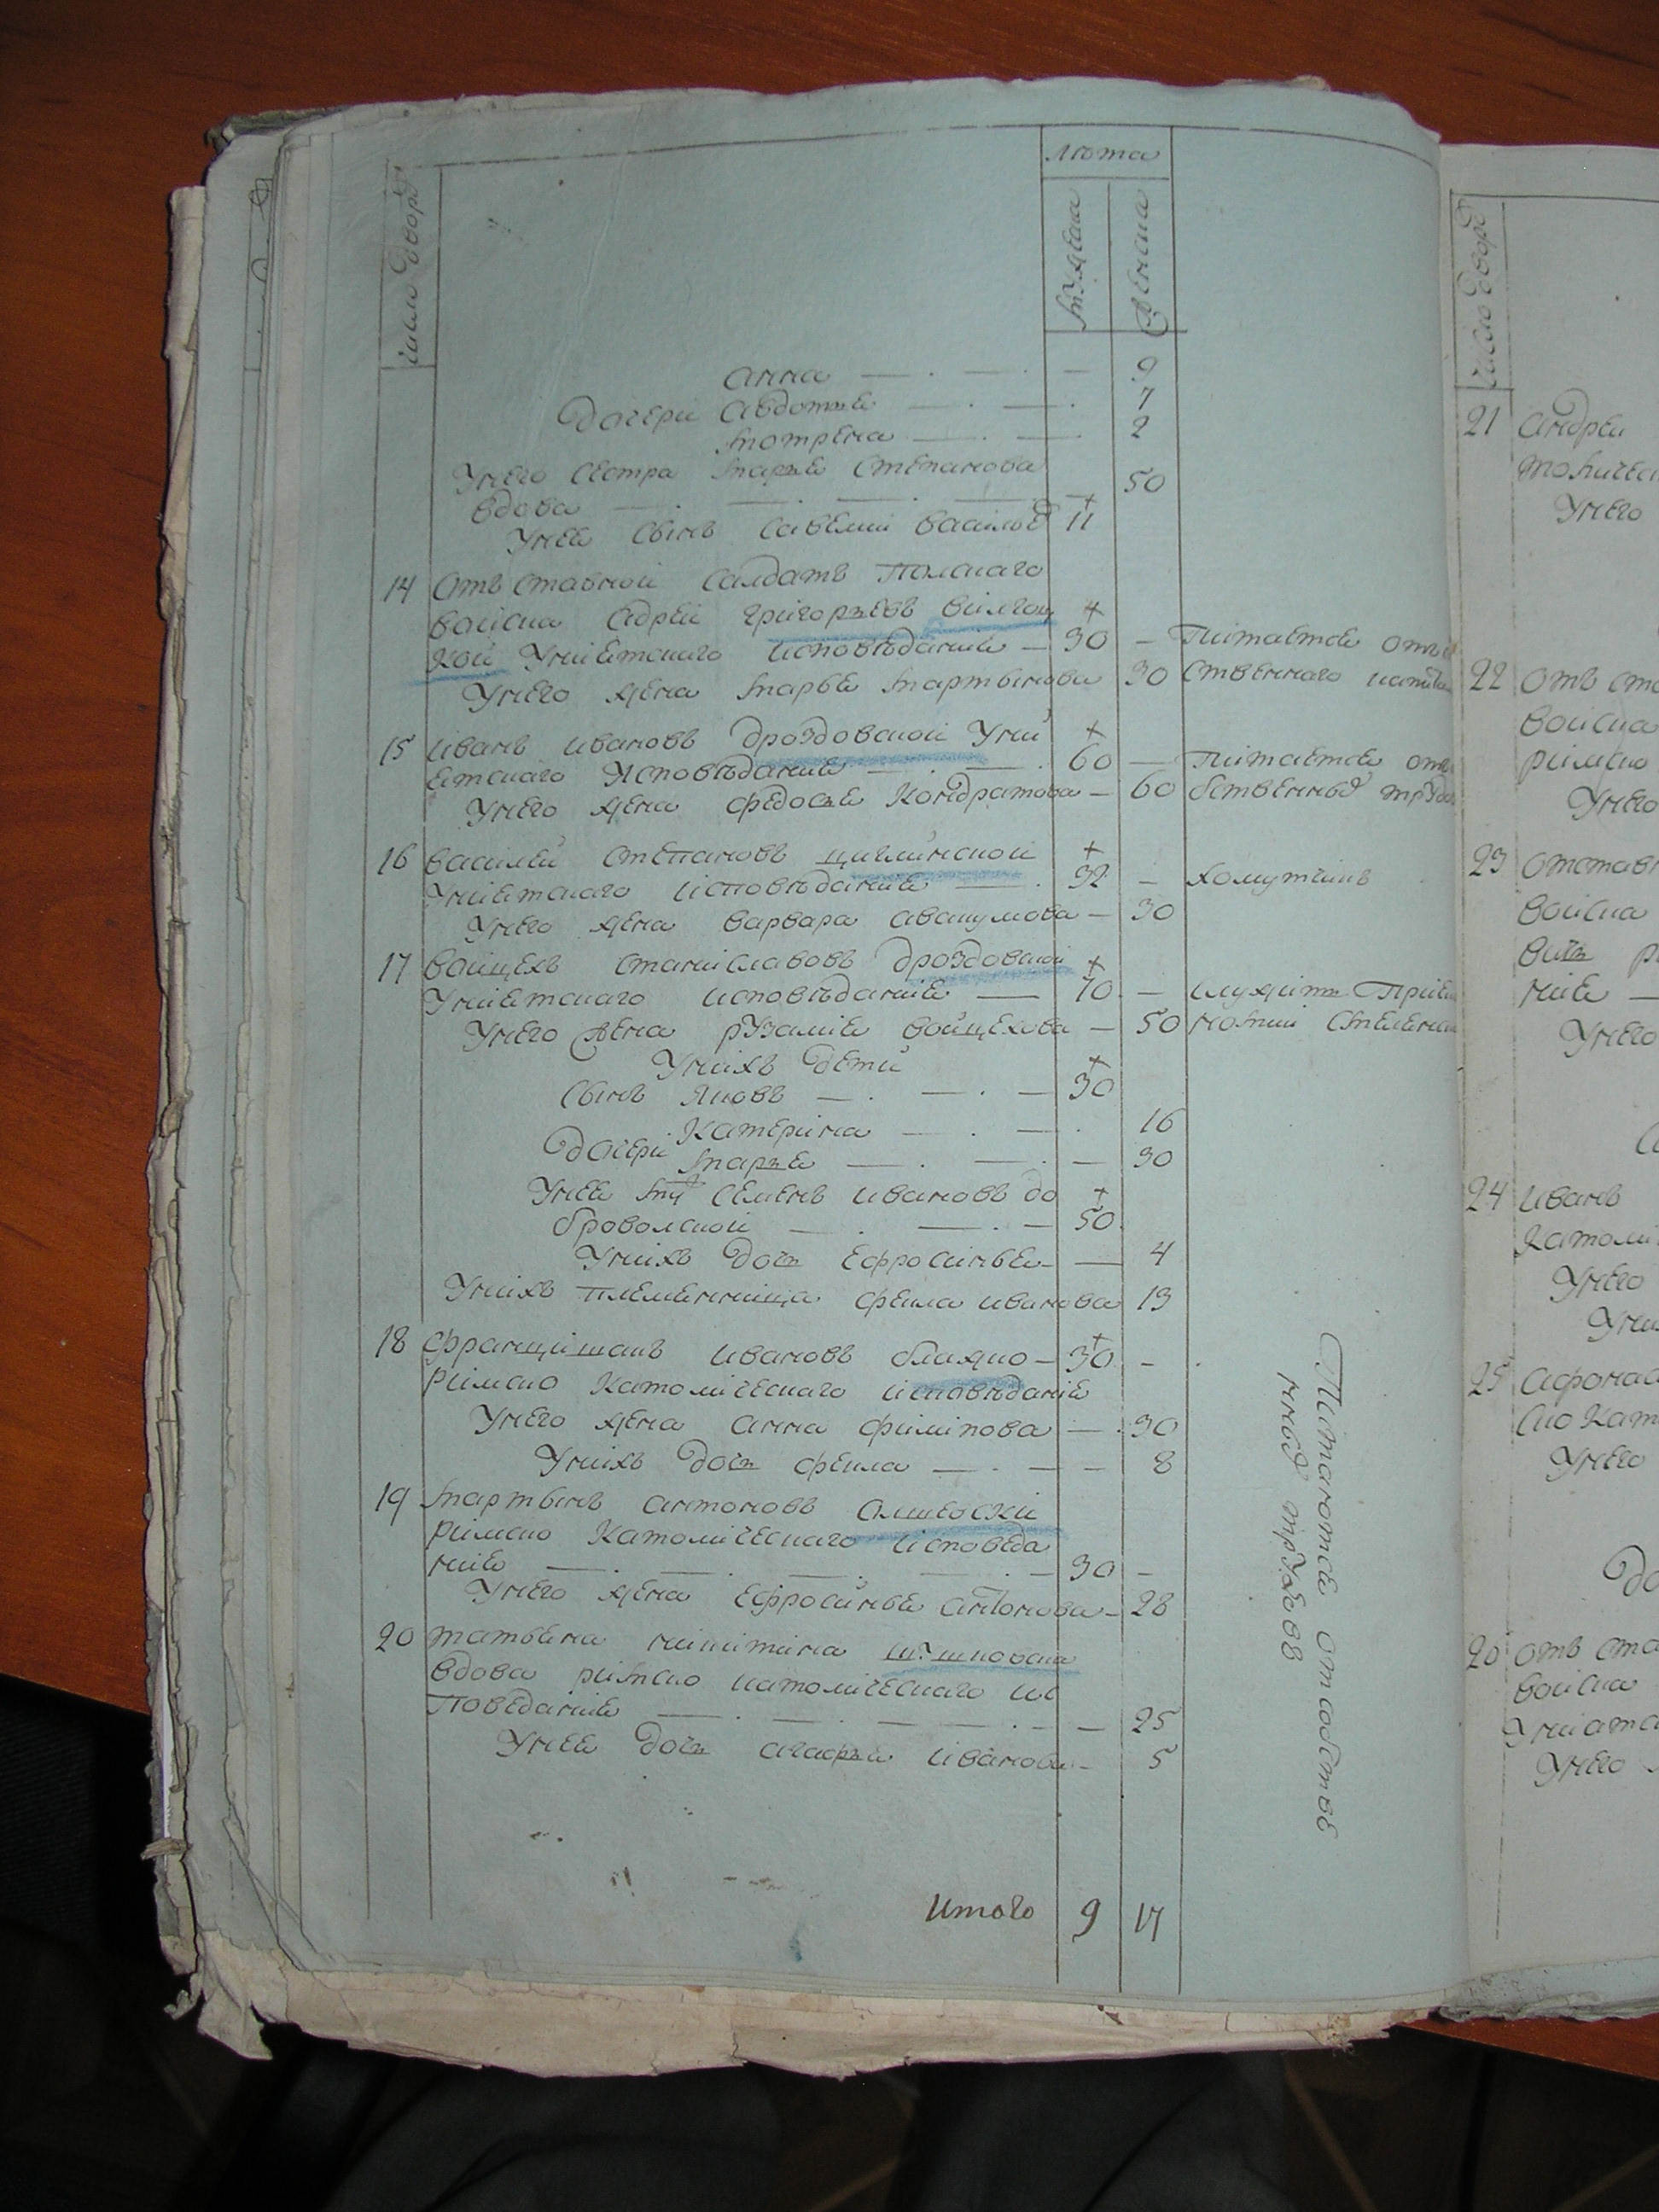 лета
число дворъ
мужеска
женска
анна — 9
дочери авдотья — 7
матрена — 2
Унего сестра марья степанова
вдова — 50
Унее сынъ савелии василье 11
14 отъставной салдатъ полскаго
воиска адреи григорьевъ вилгоц
кой униетскаго исповѣдания — 30 — питается отъ
Унего жена марья мартынова 30 ственнаго
15 иванъ ивановъ дроздовской уни
етскаго исповѣдания — 60 — питается отъ
Унего жена федосья кондратова — 60 бственные трудо
16 василей степановъ
униетскаго исповѣдания — 32 — хомутчикъ
Унего жена варвара авакумова — 30
17 войцехъ станиславовъ дроздовской
униетскаго исповѣдания — 70 — служитъ при
Унего жена рузалия войцехова — 50
Унихъ дети
сынъ яковъ — 30
катерина — 16
дочери марья — 30
Унее му семенъ ивановъ до
броволской — 50
Унихъ дочь ефросинья — 4
Унихъ племенница фекла иванова 13
18 францишакъ ивановъ блажко — 30 —
римско католическаго исповѣдания
Унего жена анна филипова — 30
Унихъ дочь фекла — 8
19 мартынъ антоновъ
римско католическаго исповеда
ние — 30 —
Унего жена ефросинья антонова — 28
20 татьяна никитина
вдова римско католическаго ис
поведания — 25
Унее дочь агафья иванова — 5
Питаются отсобстве
нныѣ трудовъ
итого 9 17
число дворъ
21 андреи
толическ
Унего
22 отъ ста
воиска
римско
Унего
23 отстав
воиска
вичь р
ние —
Унего
24 иванъ
католи
Унего
Уни
25 афонас
ско кат
Унего
до
отъ ста
воиска
униатс
Унего